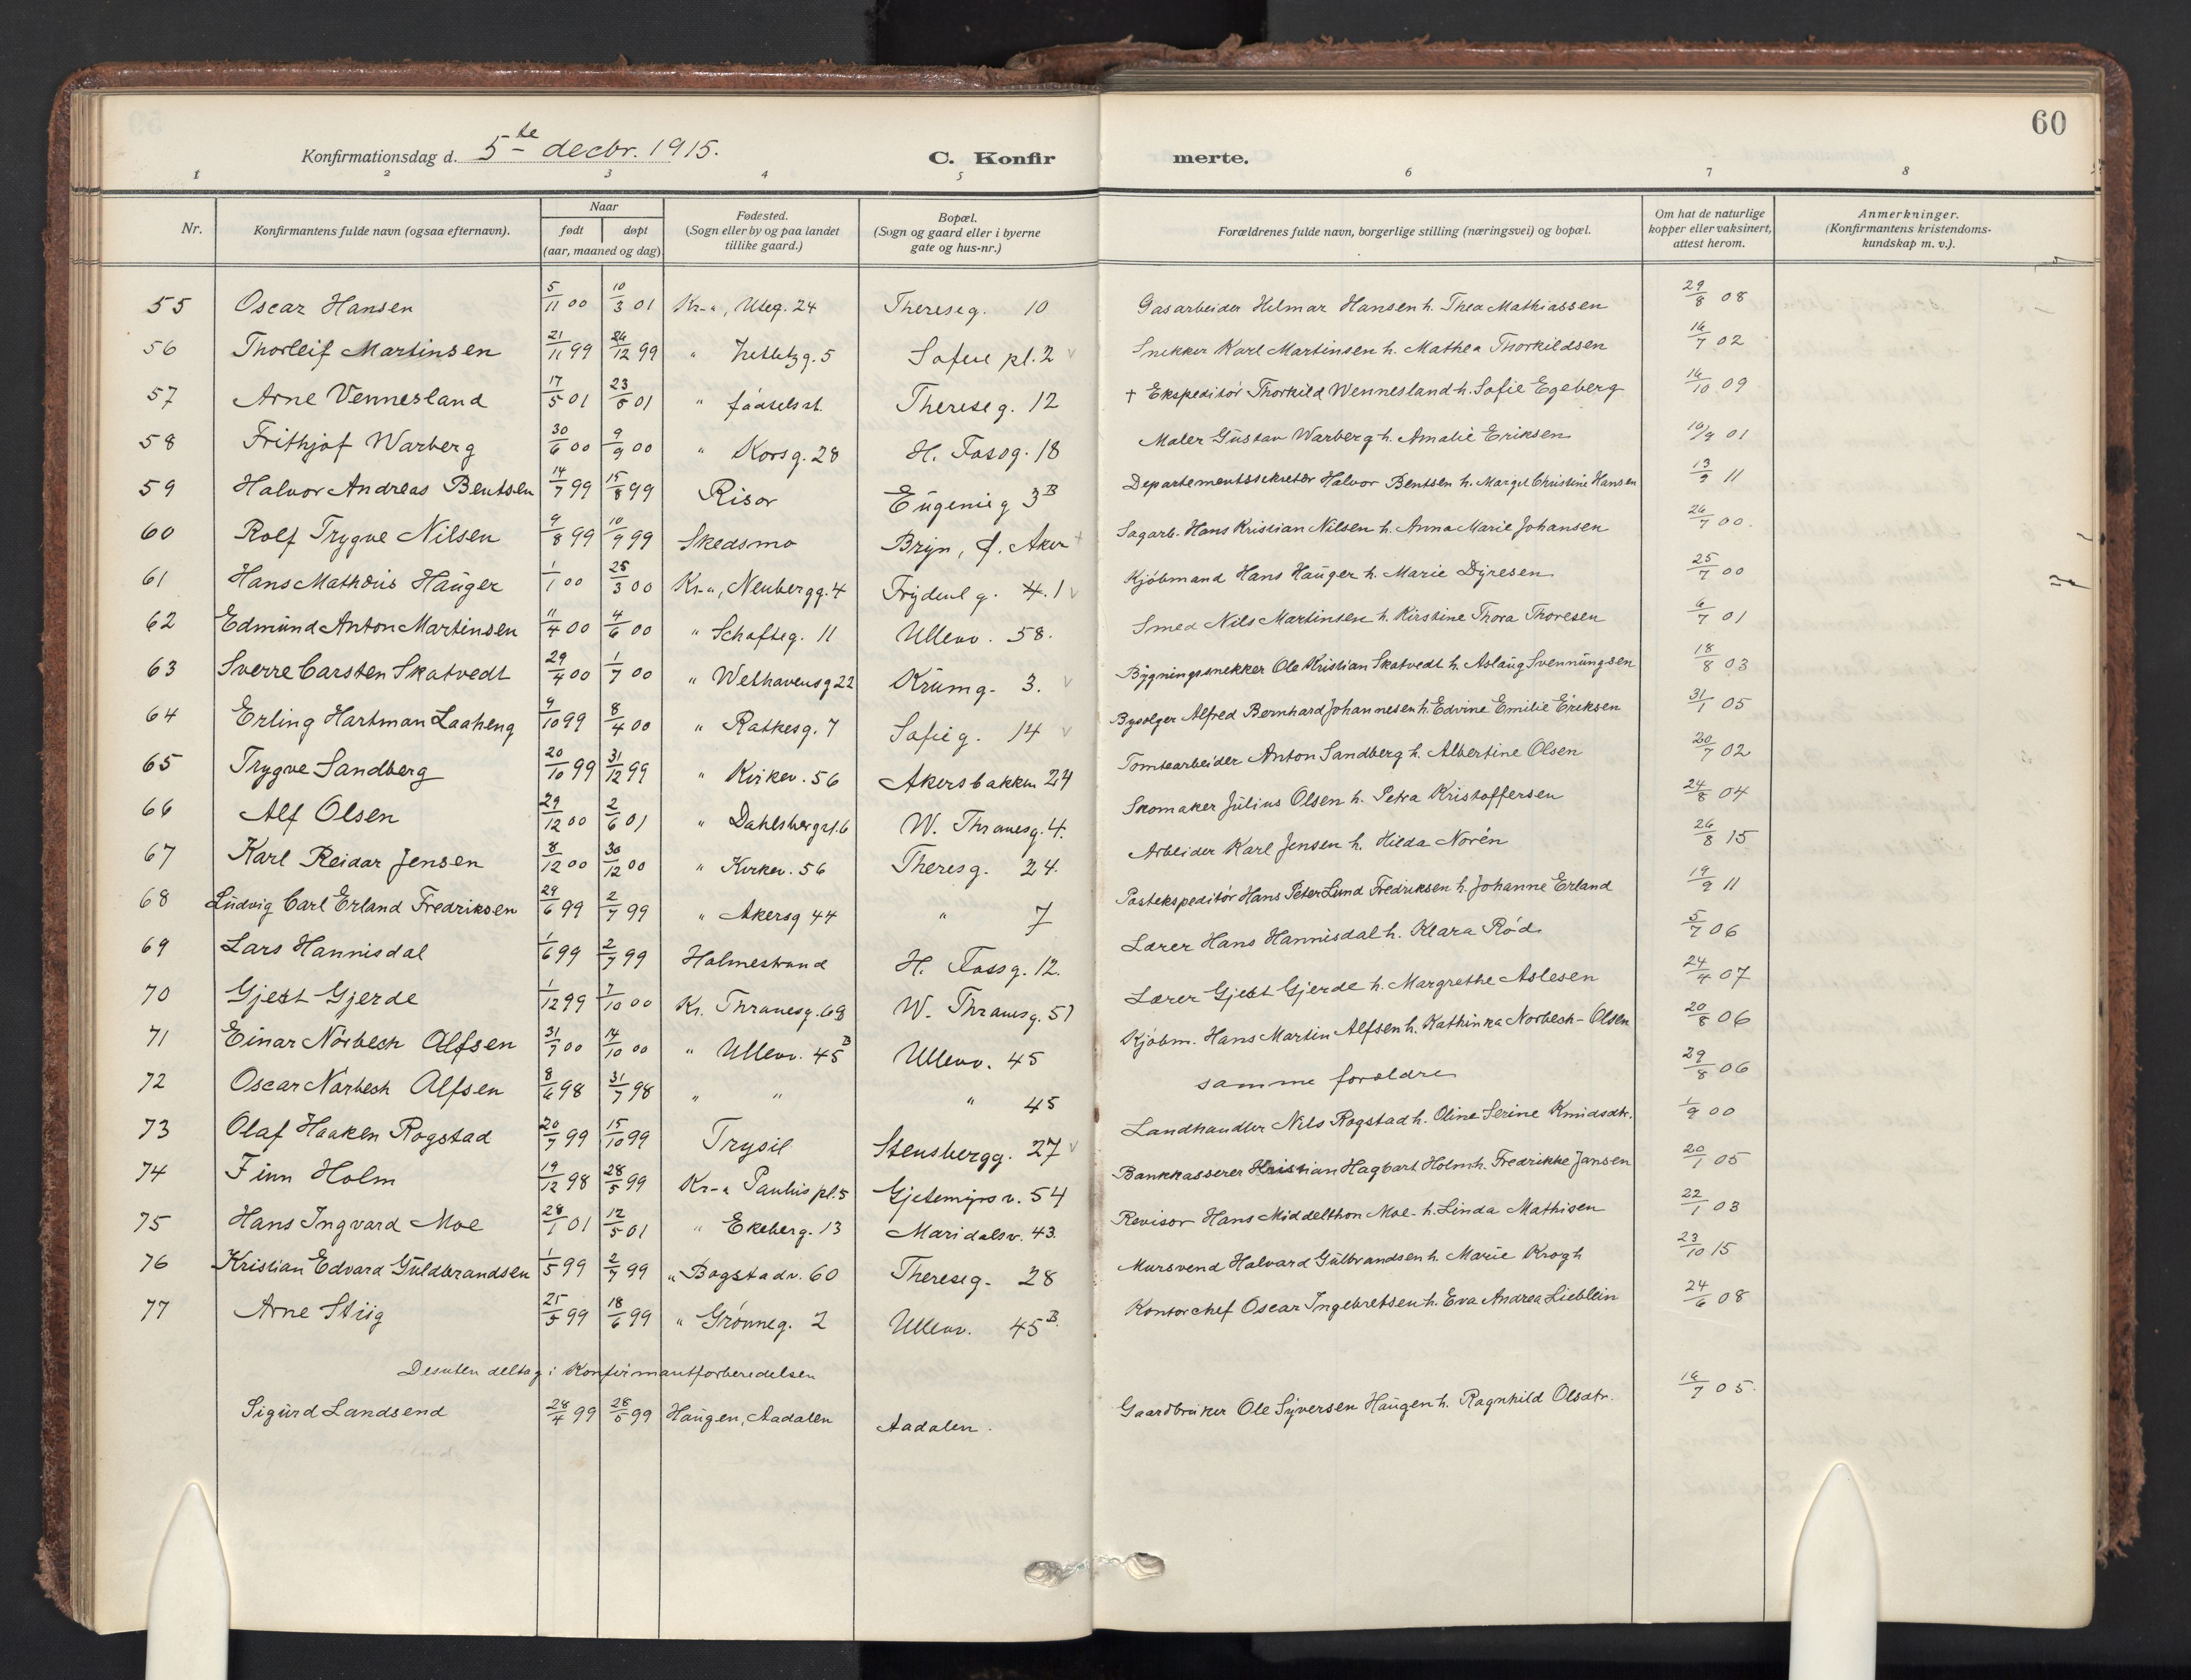 60
Konfirmationsdag d. 5te decbr. 1915. C. Konfir merte.
1 2 3 4 5 6 7 8
Nr. Konfirmantens fulde navn (ogsaa efternavn). Naar født døpt (aar, maaned og dag) Fødested. (Sogn eller by og paa landet tillike gaard.) Bopæl. (Sogn og gaard eller i byerne gate og hus-nr.) Forældrenes fulde navn, borgerlige stilling (næringsvei) og bopæl. Om hat de naturlige kopper eller vaksinert, attest herom. Anmerkninger. (Konfirmantens kristendoms- kundskap m. v.).
55 Oscar Hansen 5/11 00 10/3 01 Kr-a, Uteg. 24 Thereseg. 10 Gasarbeider Hilmar Hansen h. Thea Mathiassen 29/8 08
56 Thorleif Martinsen 21/11 99 26/12 99 " Zetlitzg. 5 Sofie pl. 2 Snekker Karl Martinsen h. Mathea Thorkildsen 16/7 02
57 Arne Vennesland 17/5 01 23/6 01 " fødselsst. Thereseg. 12 † Ekspeditør Thorkild Wennesland h. Sofie Egeberg 16/10 09
58 Frithjof Warberg 30/6 00 9/9 00 " Korsg. 28 H. Fossg. 18 Maler Gustav Warberg h. Amalie Eriksen 10/9 01
59 Halvor Andreas Bentsen 14/7 99 15/8 99 Risør Eugenieg 3B Departementssekretær Halvor Bentsen h. Margit Christine Hansen 13/9 11
60 Rolf Trygve Nilsen 9/8 99 10/9 99 Skedsmo Bryn, Ø. Aker Sagarb. Hans Kristian Nilsen h. Anna Marie Johansen 26/7 00.
61 Hans Mathæus Hauger 1/1 00 25/3 00 Kr-a, Neubergg. 4 Frydenl g. 4. 1 Kjøbmand Hans Hauger h. Marie Dyresen 25/7 00
62 Edmund Anton Martinsen 11/4 00 4/6 00 " Schafteg. 11 Ullevv. 58. Smed Nils Martinsen h. Kirstine Thora Thoresen 6/7 01
63 Sverre Carsten Skatvedt 29/4 00 1/7 00 " Welhavensg 22 Krumg. 3. Bygningssnekker Ole Kristian Skatvedt h. Aslaug Svennungsen 18/8 03
64 Erling Hartman Laaheng 9/10 99 8/4 00 " Rathesg. 7 Sofieg. 14 Byselger Alfred Bernhard Johannesen h. Edvine Emilie Eriksen 31/1 05
65 Trygve Sandberg 20/10 99 31/12 99 " Kirkev. 56 Akersbakken 24 Tomtearbeider Anton Sandberg h. Albertine Olsen 30/7 02
66 Alf Olsen 29/12 00 2/6 01 " Dahlsbergst. 6 W. Thranesg. 4. Skomaker Julius Olsen h. Petra Kristoffersen 24/8 04
67 Karl Reidar Jensen 8/12 00 30/12 00 " Kirkev. 56 Theresg. 24. Arbeider Karl Jensen h. Hilda Norén 26/8 15
68 Ludvig Carl Erland Fredriksen 29/6 99 2/7 99 " Akersg 44 " 7 Postekspeditør Hans Peter Lund Fredriksen h. Johanne Erland 19/9 11
69 Lars Hannisdal 1/6 99 2/7 99 Holmestrand H. Fossg. 12. Lærer Hans Hannisdal h. Klara Rød. 5/7 06
70 Gjert Gjerde 1/12 99 7/10 00 Kr. Thranesg. 68 W. Thranesg. 51 Lærer Gjert Gjerde h. Margrethe Aslesen 24/4 07
71 Einar Nørbech Alfsen 31/7 00 14/10 00 " Ullevv. 45B Ullevv. 45 Kjøbm. Hans Martin Alfsen h. Kathinka Norbech-Olsen 20/8 06
72 Oscar Nørbech Alfsen 8/6 98 31/7 98 " " " 45 samme foreldre 29/8 06
73 Olaf Haaken Rogstad 20/7 99 15/10 99 Trysil Stensbergg. 27 Landhandler Nils Rogstad h. Oline Serine Knudsdtr. 1/9 00
74 Finn Holm 19/12 98 28/5 99 Kr-a Paulus pl. 5 Gjetemyrsv. 54 Bankkasserer Kristian Hagbart Holm h. Fredrikke Jansen 20/1 05
75 Hans Ingvard Moe 28/1 01 12/5 01 " Ekeberg. 13 Maridalsv. 43. Revisor Hans Middelthon Moe h. Linda Mathisen 22/1 03
76 Kristian Edvard Guldbrandsen 1/5 99 2/7 99 " Bogstadv. 60 Thereseg. 28 Mursvend Halvard Gulbrandsen h. Marie Krogh 23/10 15
77 Arne Stiig 25/5 99 18/6 99 " Grønneg. 2 Ullevv. 45B. Kontorchef Oscar Ingebretsen h. Eva Andrea Lieblein 24/6 08
Desuten deltag i Konfirmantforberedelsen
Sigurd Landsend 28/4 99 28/5 99 Haugen, Aadalen Aadalen. Gaardbruker Ole Syversen Haugen h. Ragnhild Olsdtr. 16/7 05.